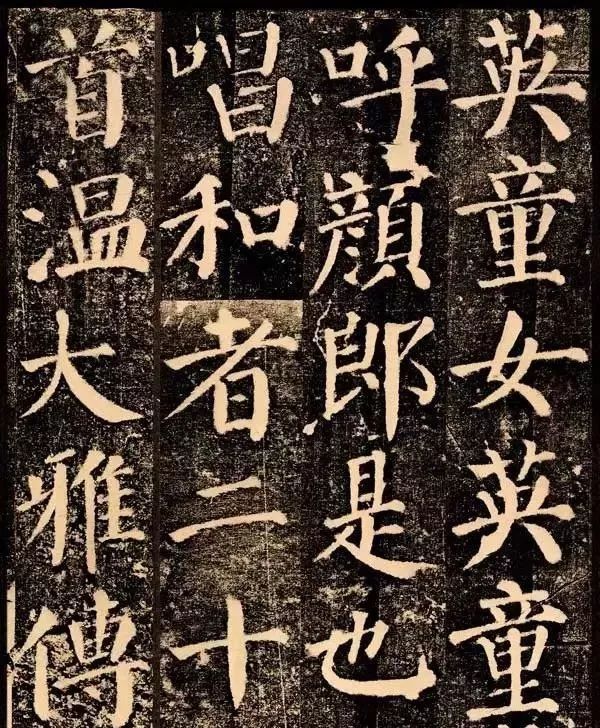 英童女英童
呼顔郎是也
唱和者二十
首温大雅傳